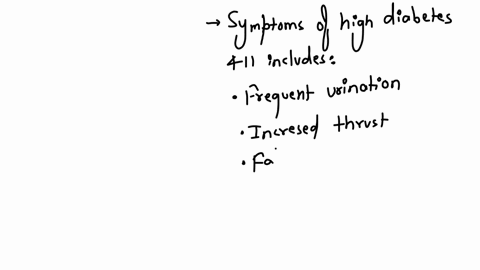 → Symptoms of high diabetes
411 includes:
• Frequent urination
• Incresed thrust
• Fa